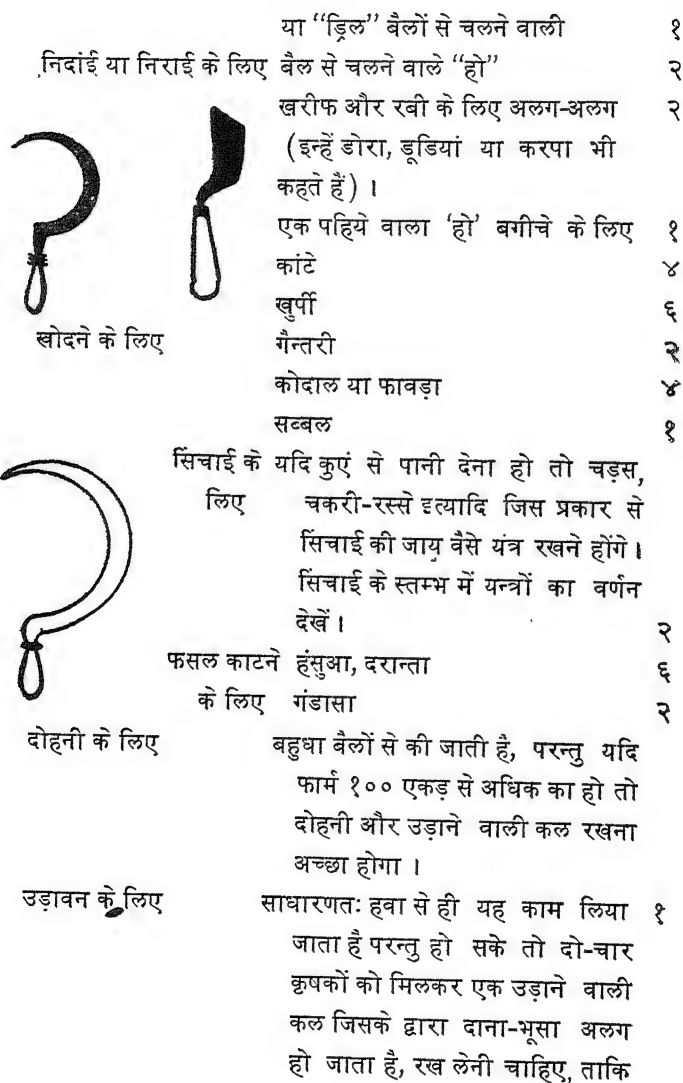 या “ड्रिल” बैलों से चलने वाली १
निदांई या निराई के लिए बैल से चलने वाले “हो” २
खरीफ और रबी के लिए अलग-अलग २
(इन्हें डोरा, डूडियां या करपा भी
कहते हैं) ।
एक पहिये वाला ‘हो’ बगीचे के लिए १
कांटे ४
खुर्पी ६
खोदने के लिए गैन्तरी २
कोदाल या फावड़ा ४
सब्बल १
सिंचाई के यदि कुएं से पानी देना हो तो चड़स,
लिए चकरी-रस्से इत्यादि जिस प्रकार से
सिंचाई की जाय वैसे यंत्र रखने होंगे ।
सिंचाई के स्तम्भ में यन्त्रों का वर्णन
देखें । २
फसल काटने हंसुआ, दरान्ता ६
के लिए गंडासा २
दोहनी के लिए बहुधा बैलों से की जाती है, परन्तु यदि
फार्म १०० एकड़ से अधिक का हो तो
दोहनी और उड़ाने वाली कल रखना
अच्छा होगा ।
उड़ावन के लिए साधारणतः हवा से ही यह काम लिया १
जाता है परन्तु हो सके तो दो-चार
कृषकों को मिलकर एक उड़ाने वाली
कल जिसके द्वारा दाना-भूसा अलग
हो जाता है, रख लेनी चाहिए, ताकि